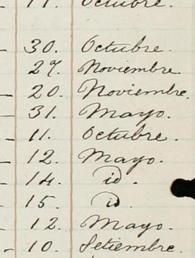 11. Octubre.
30. Octubre.
27. Noviembre.
20. Noviembre.
31. Mayo.
11. Octubre.
12. Mayo.
14. id.
15. id.
12. Mayo.
10. Setiembre.